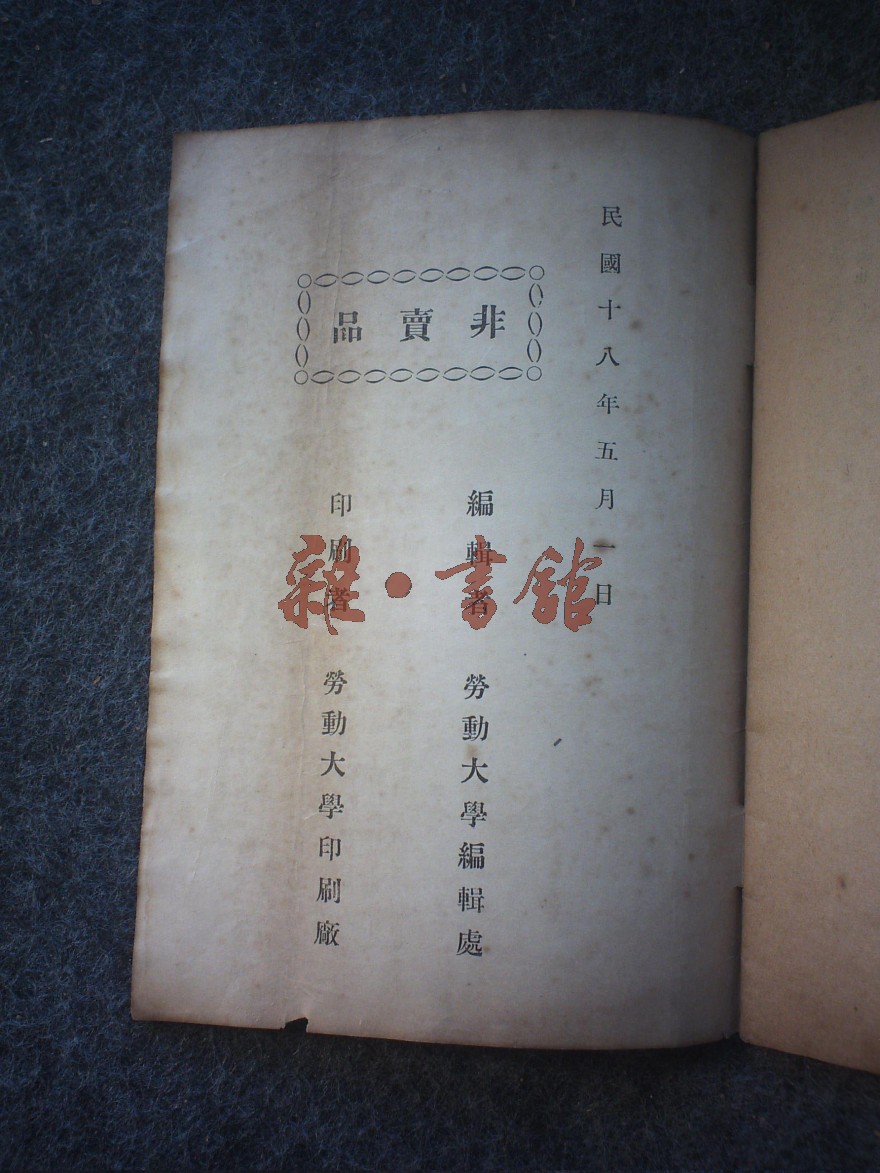 民國十八年五月一日
非賣品
編輯者 勞動大學編輯處
印刷者 勞動大學印刷廠
雜·書館